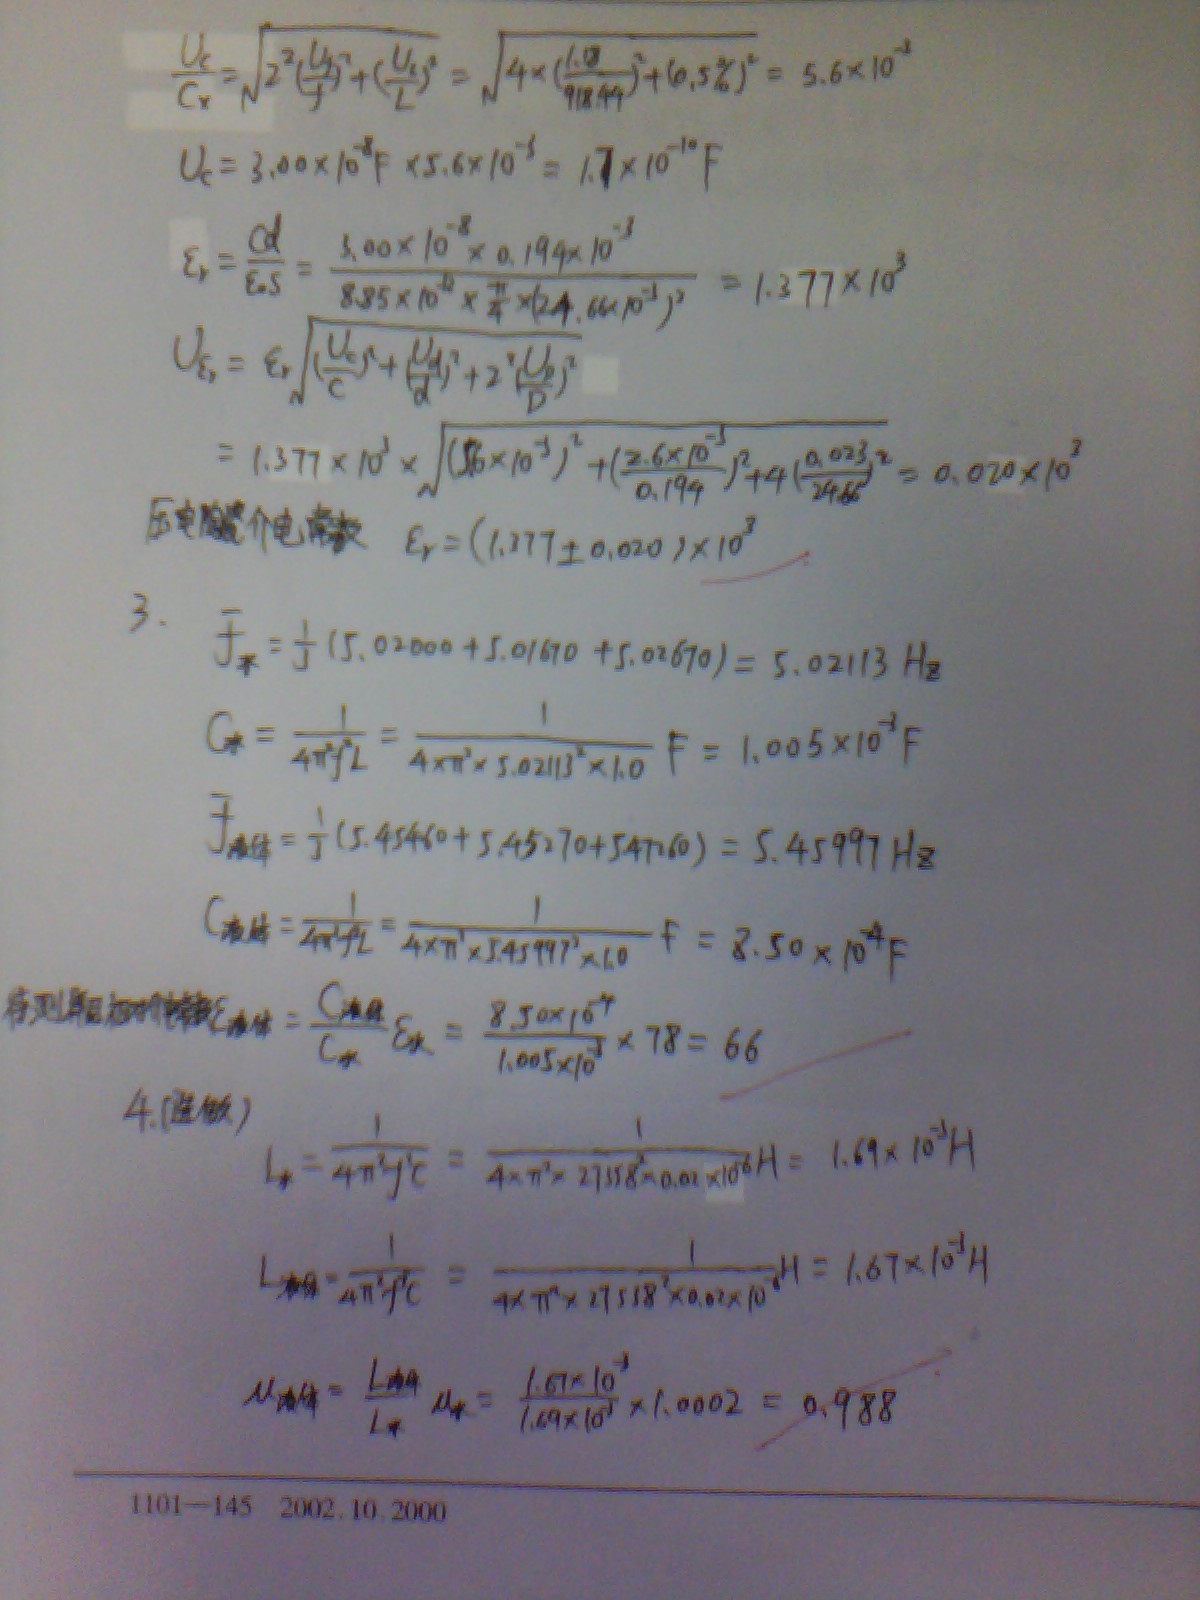 Uc/Cx = √(2²(Uf/f)²+(UL/L)²) = √(4×(1.18/918.44)²+(0.5%)²) = 5.6×10⁻³
Uc = 3.00×10⁻⁸F ×5.6×10⁻³ = 1.7×10⁻¹⁰F
εr = Cd/ε₀S = 3.00×10⁻⁸×0.194×10⁻³/(8.85×10⁻¹²×π/4×(24.66×10⁻³)²) = 1.377×10³
Uεr = εr√((Uc/C)²+(Ud/d)²+2²(UD/D)²)
= 1.377×10³×√((5.6×10⁻³)²+(2.6×10⁻³/0.194)²+4(0.023/24.66)²) = 0.020×10³
压电陶瓷介电常数 εr=(1.377±0.020)×10³
3.
f̄水 = 1/3(5.02000+5.01670+5.02670) = 5.02113 Hz
C水 = 1/4π²f²L = 1/(4×π²×5.02113²×1.0) F = 1.005×10⁻³F
f̄液体 = 1/3(5.45460+5.45270+5.47260) = 5.45997 Hz
C液体 = 1/4π²f²L = 1/(4×π²×5.45997²×1.0) F = 8.50×10⁻⁴F
ε液体 = C液体/C水 ε水 = 8.50×10⁻⁴/1.005×10⁻³ × 78 = 66
4.(选做)
L水 = 1/4π²f²C = 1/(4×π²×27358²×0.02×10⁻⁶) H = 1.69×10⁻³H
L液体 = 1/4π²f²C = 1/(4×π²×27558²×0.02×10⁻⁶) H = 1.67×10⁻³H
μ液体 = L液体/L水 μ水 = 1.67×10⁻³/1.69×10⁻³ ×1.0002 = 0.988
1101—145 2002.10.2000